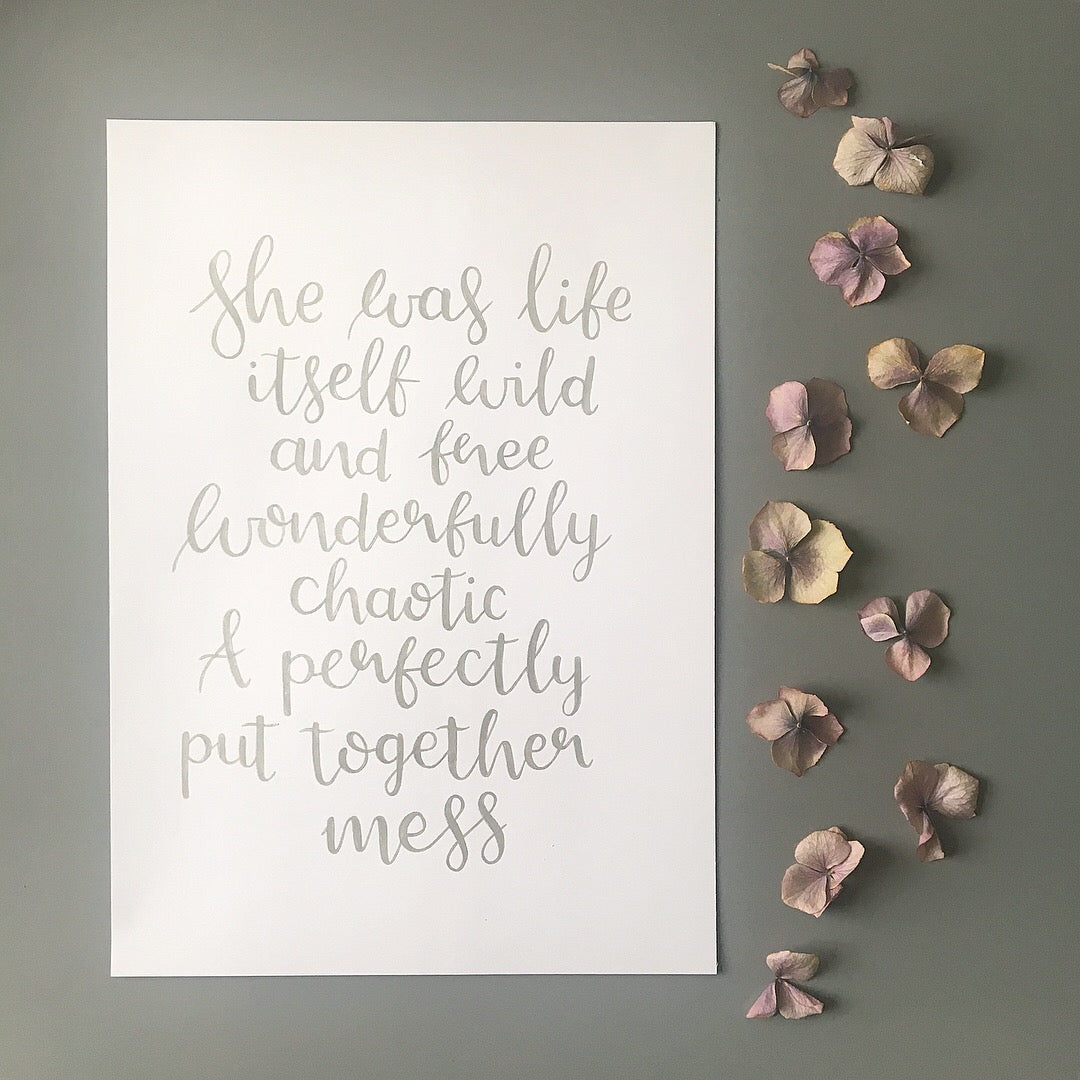 She was life
itself wild
and free
Wonderfully
chaotic
A perfectly
put together
mess